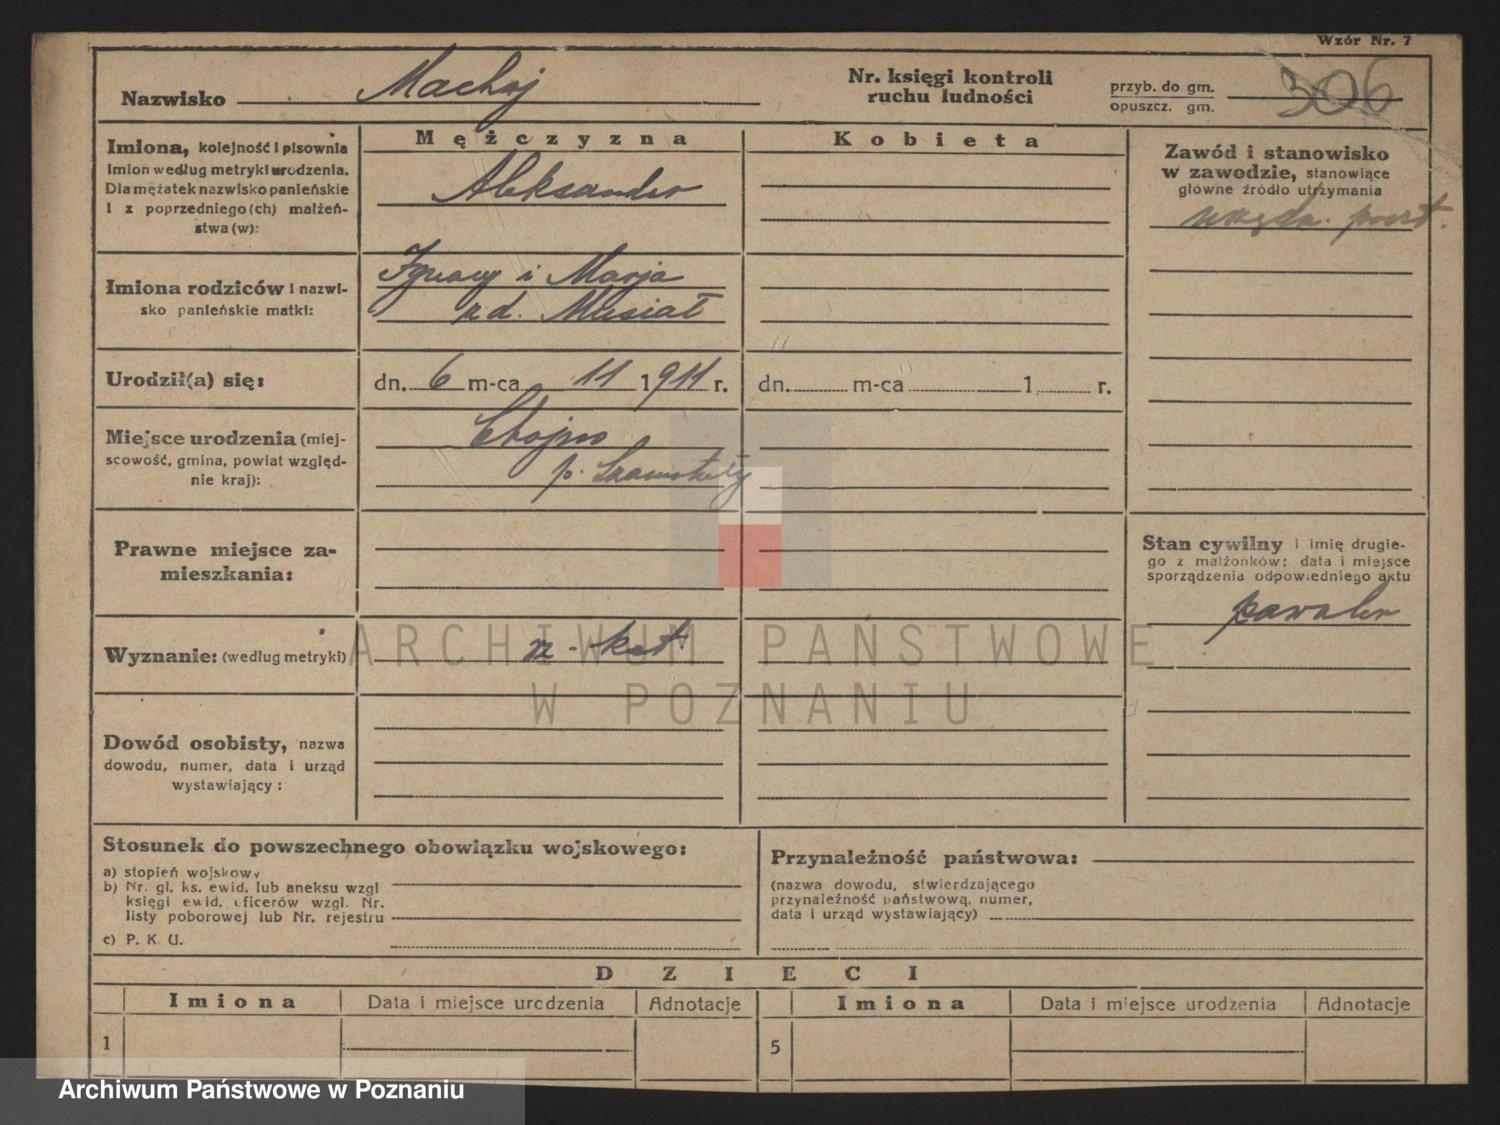 Wzór Nr. 7
Nazwisko Machaj
Nr. księgi kontroli
ruchu ludności
przyb. do gm.
opuszcz. gm.
306
Imiona, kolejność i pisownia
imion według metryki urodzenia.
Dla mężatek nazwisko panieńskie
i z poprzedniego(ch) małżeń-
stwa(w):
Mężczyzna
Aleksander
Kobieta
Zawód i stanowisko
w zawodzie, stanowiące
główne źródło utrzymania
Imiona rodziców i nazwi-
sko panieńskie matki:
Ignacy i Marja
zd. Musiał
Urodził(a) się:
dn. 6 m-ca 11 1911 r.
dn. m-ca 1 r.
Miejsce urodzenia (miej-
scowość, gmina, powiat względ-
nie kraj):
Chojno
p. Szamotuły
Prawne miejsce za-
mieszkania:
Stan cywilny i imię drugie-
go z małżonków; data i miejsce
sporządzenia odpowiedniego aktu
kawaler
Wyznanie: (według metryki)
rz-kat
ARCHIWUM PAŃSTWOWE
W POZNANIU
Dowód osobisty, nazwa
dowodu, numer, data i urząd
wystawiający:
Stosunek do powszechnego obowiązku wojskowego:
a) stopień wojskowy
b) Nr. gł. ks. ewid. lub aneksu wzgl
księgi ewid. oficerów wzgl. Nr.
listy poborowej lub Nr. rejestru
c) P. K. U.
Przynależność państwowa:
(nazwa dowodu, stwierdzającego
przynależność państwową, numer,
data i urząd wystawiający)
DZIECI
Imiona Data i miejsce urodzenia Adnotacje Imiona Data i miejsce urodzenia Adnotacje
1 5
Archiwum Państwowe w Poznaniu